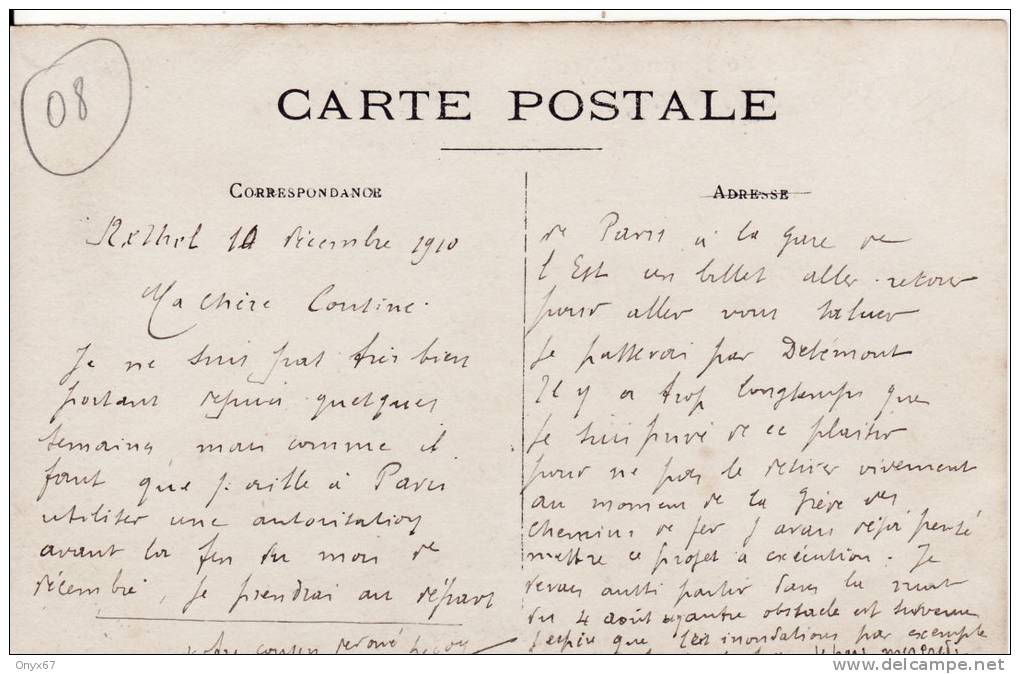 08
CARTE POSTALE
CORRESPONDANCE
Rethel 10 décembre 1910
Ma Chère Cousine.
Je ne suis pas très bien
portant depuis quelques
semaines, mais comme il
faut que j'aille à Paris
utiliser une autorisation
avant la fin du mois de
décembre, je prendrai au départ
votre cousin dévoué
ADRESSE
de Paris à la gare de
l'Est un billet aller-retour
pour aller vous saluer
Je passerai par Delémont
Il y a trop longtemps que
je suis privé de ce plaisir
pour ne pas le désirer vivement
au moment de la grève des
chemins de fer j'avais déjà pensé
mettre ce projet à exécution. Je
devais aussi partir dans la nuit
du 4 août autre obstacle est survenu
j'espère que les inondations par exemple
Onyx67
www.delcampe.net